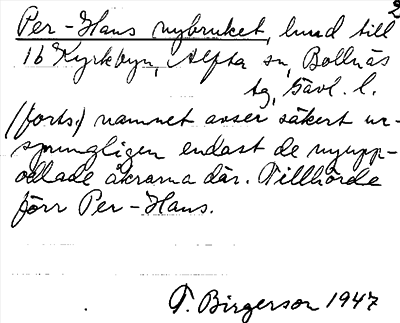 2
Per-Hans nybruket, hund till
16 Kyrkbyn, Alfta sn, Bollnäs
tg, Gävl. l.
(forts.) namnet avser säkert ur-
sprungligen endast de nyupp-
odlade åkrarna där. Tillhörde
förr Per-Hans.
T. Birgerson 1947